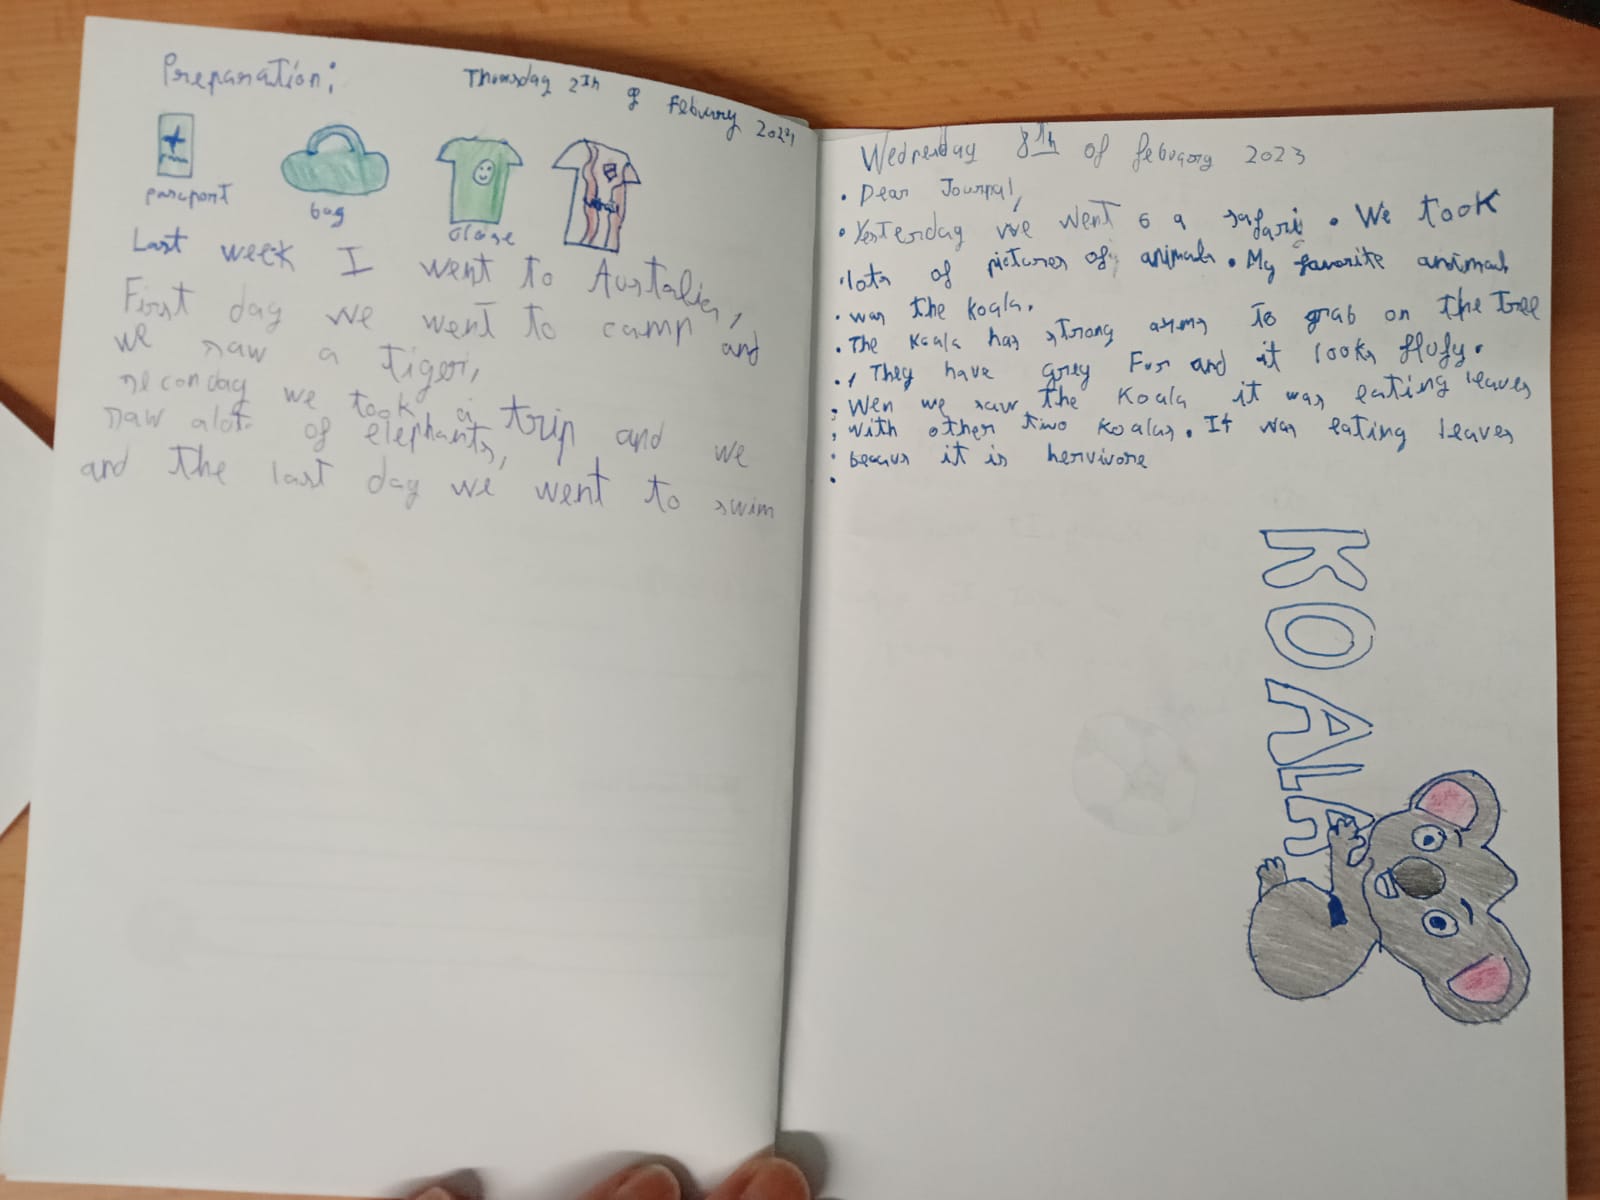 Preparation:
Thursday 2th of Februry 202
pasaport
bag
close
Last week I went to Australia,
First day we went to camp and
we saw a tiger,
seconday we took a trip and we
saw alot of elephants,
and the last day we went to swim
Wednesday 8th of febuary 2023
Dear Journal,
Yesterday we went to a safari. We took
lots of pictures of animals. My favorite animal
was the koala.
The Koala has strong arms to grab on the tree
They have grey Fur and it looks flufy.
Wen we saw the Koala it was eating leaves
with other two koalas. It was eating leaves
becaus it is hervivore
KOALA